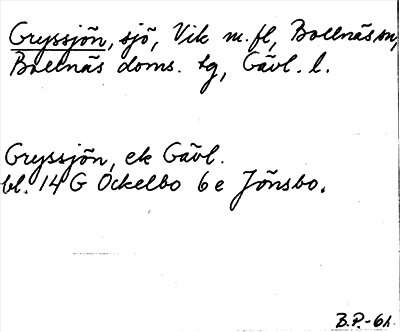 Gryssjön, sjö, Vik m.fl, Bollnäs sn,
Bollnäs doms. tg, Gävl. l.
Gryssjön, ek Gävl.
bl. 14 G Ockelbo 6 e Jönsbo.
B.P.-61.